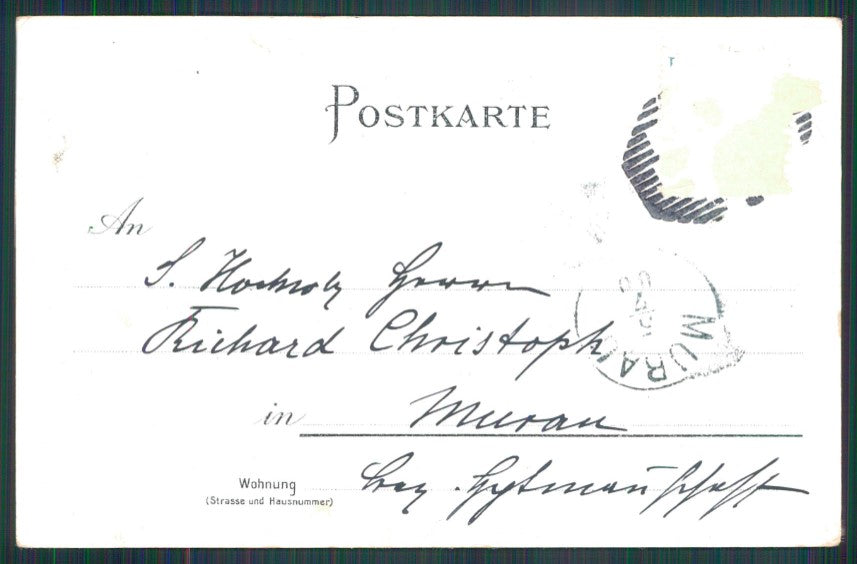 POSTKARTE
An
S. Hochwolg Herrn
Richard Christoph
in Murau
Wohnung
(Strasse und Hausnummer)
Bez. Hptmannschaft
MURAU